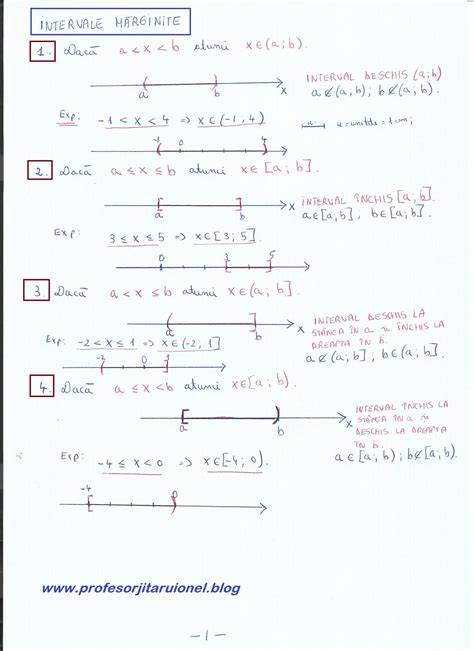 INTERVALE MĂRGINITE
1. Dacă a < x < b atunci x∈(a; b).
a b x
INTERVAL DESCHIS (a; b)
a∉(a; b); b∉(a; b).
Exp: -1 < x < 4 ⇒ x∈(-1, 4)
u = unitate = 1cm;
-1 0 4
2. Dacă a ≤ x ≤ b atunci x∈[a; b].
a b x
INTERVAL ÎNCHIS [a; b].
a∈[a; b], b∈[a; b].
Exp: 3 ≤ x ≤ 5 ⇒ x∈[3; 5].
0 3 5
3. Dacă a < x ≤ b atunci x∈(a; b].
a b x
INTERVAL DESCHIS LA
STÂNGA ÎN a și ÎNCHIS LA
DREAPTA ÎN b.
a∉(a; b]; b∈(a; b]
Exp: -2 < x ≤ 1 ⇒ x∈(-2; 1]
-2 0 1
4. Dacă a ≤ x < b atunci x∈[a; b).
a b x
INTERVAL ÎNCHIS LA
STÂNGA ÎN a și
DESCHIS LA DREAPTA
ÎN b.
a∈[a; b); b∉[a, b).
Exp: -4 ≤ x < 0 ⇒ x∈[-4; 0).
-4 0
www.profesorjitaruionel.blog
-1-